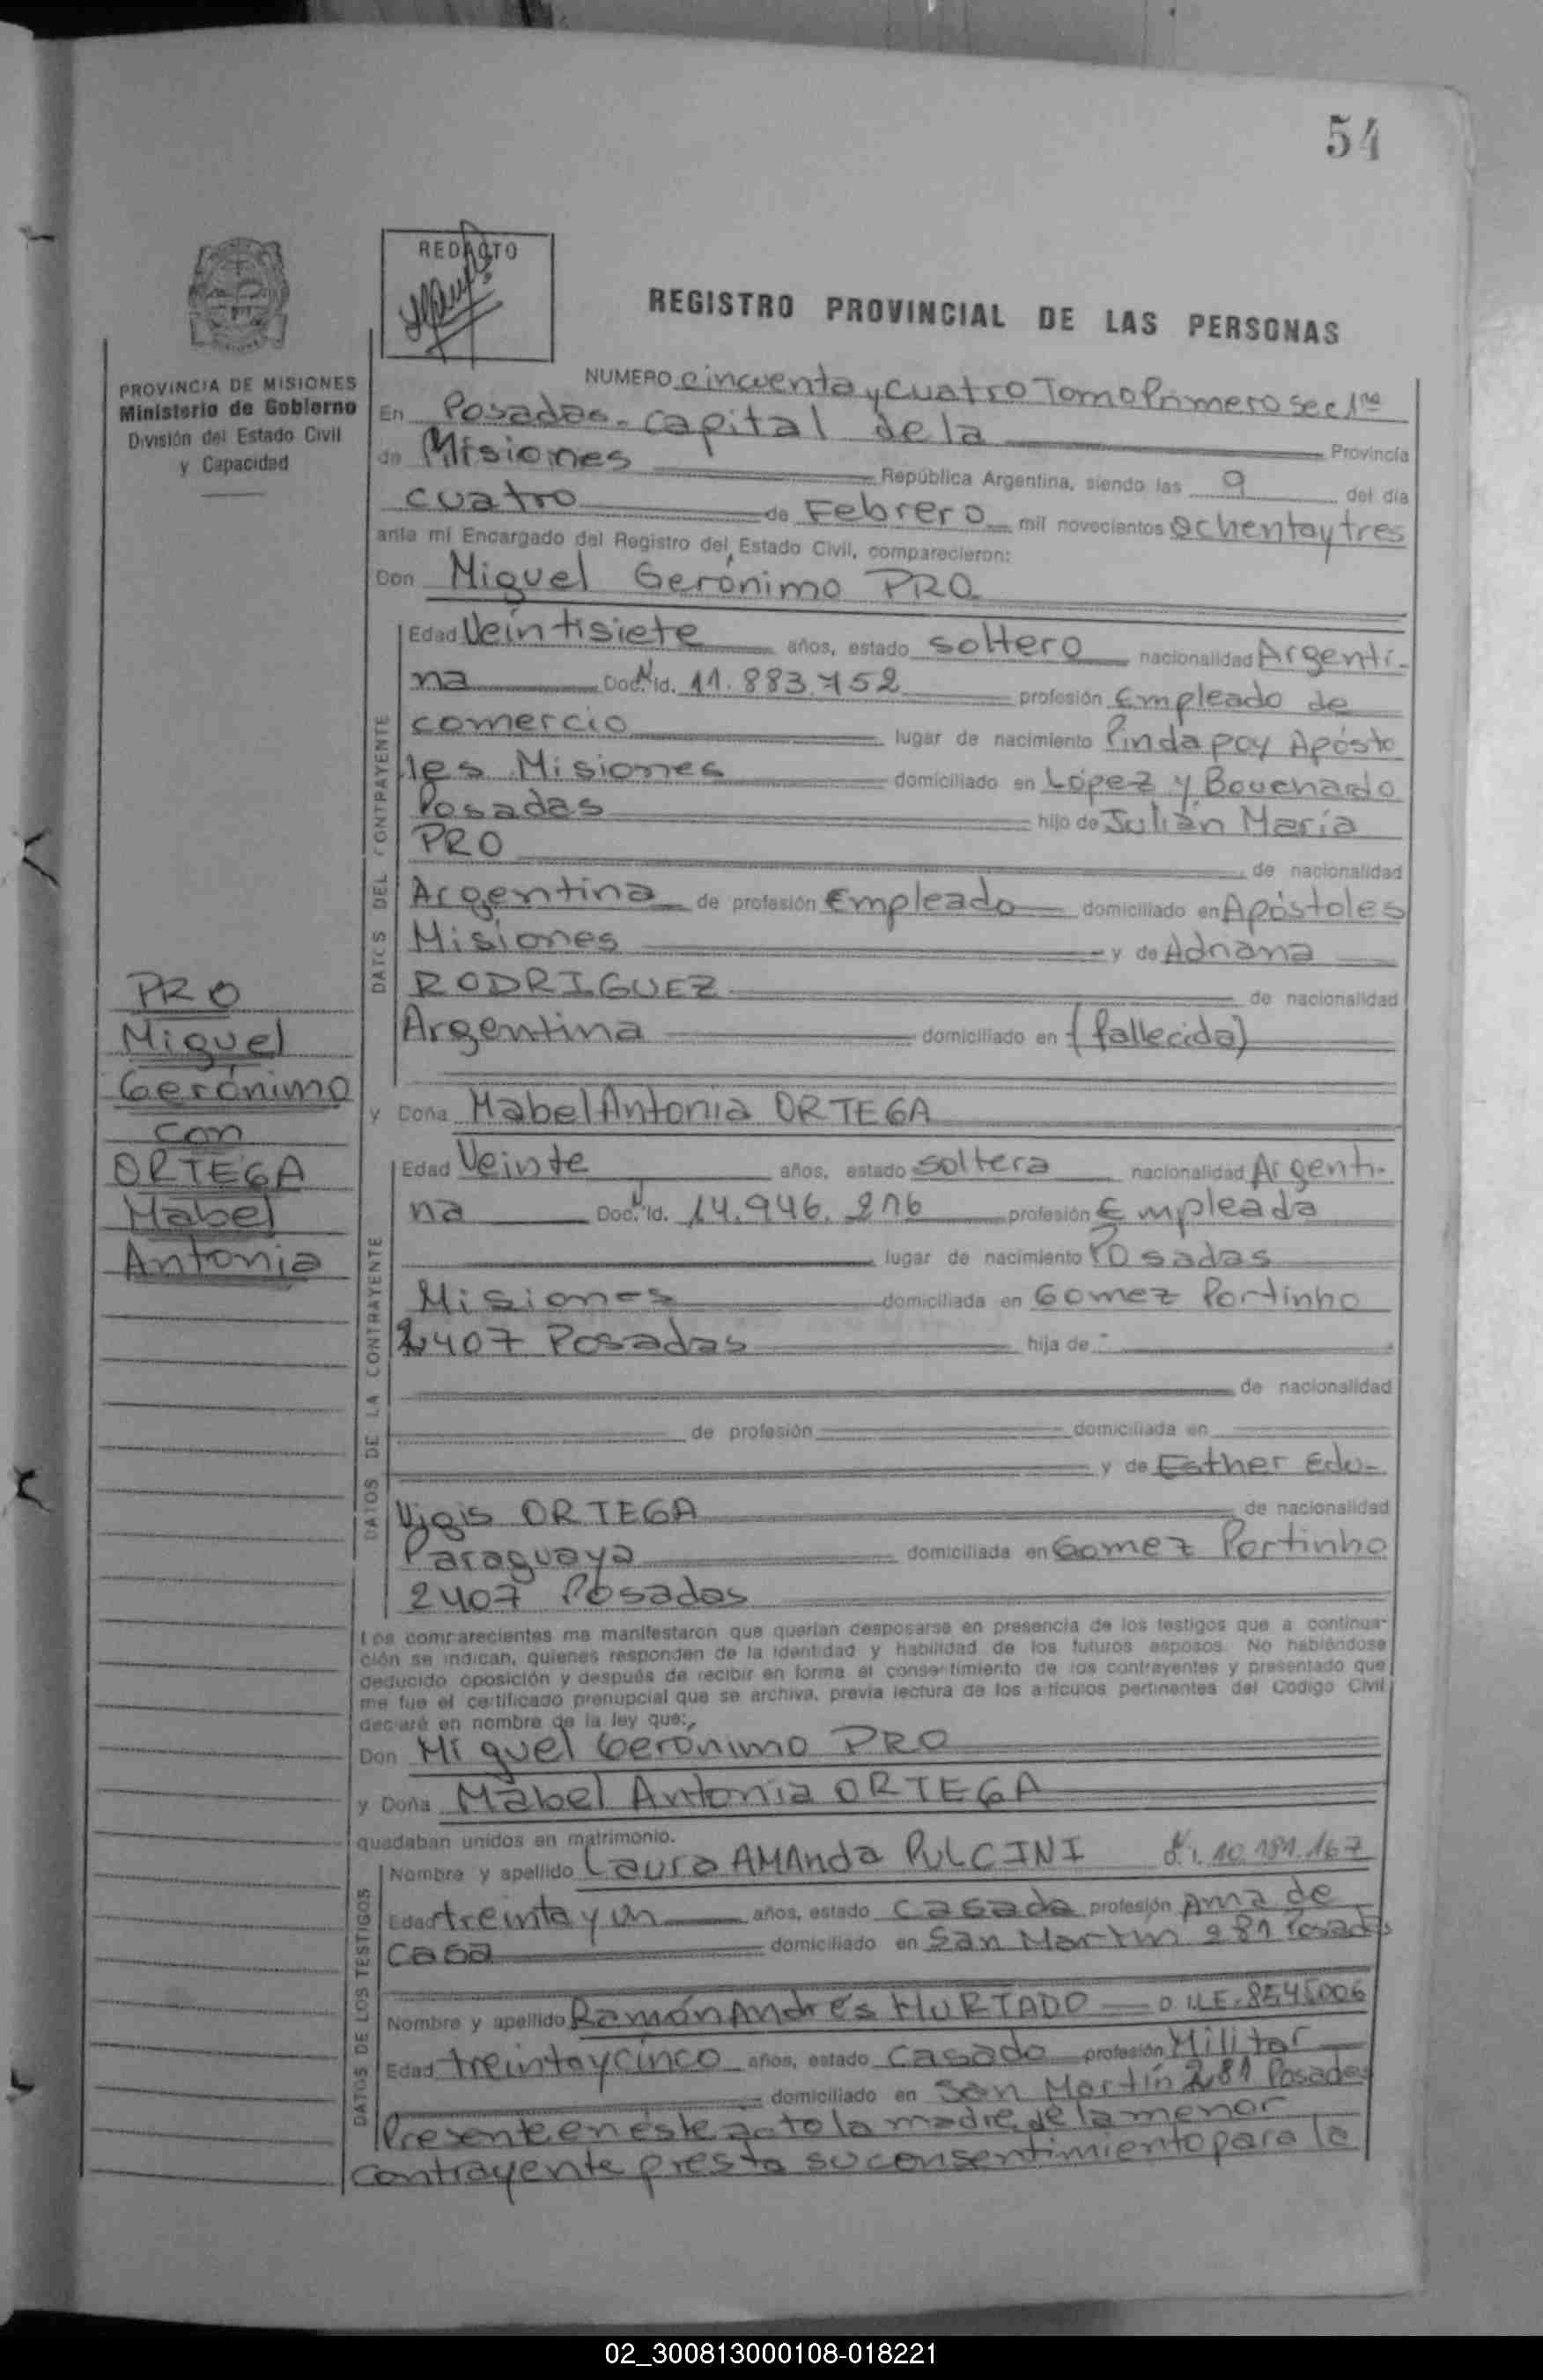 54
REDACTO
REGISTRO PROVINCIAL DE LAS PERSONAS
PROVINCIA DE MISIONES
Ministerio de Gobierno
División del Estado Civil
y Capacidad
NUMERO cincuenta y cuatro Tomo Primero Sec 1ra
En Posadas - capital de la Provincia
de Misiones República Argentina, siendo las 9 del día
cuatro de Febrero mil novecientos ochenta y tres
ante mi Encargado del Registro del Estado Civil, comparecieron:
Don Miguel Gerónimo PRO
DATOS DEL CONTRAYENTE
Edad Veintisiete años, estado soltero nacionalidad Argenti-
na Doc. N Id. 11.883.752 profesión Empleado de
comercio lugar de nacimiento Pindapoy Apósto
les Misiones domiciliado en López y Bouchardo
Posadas hijo de Julián María
PRO de nacionalidad
Argentina de profesión Empleado domiciliado en Apóstoles
Misiones y de Adriana
RODRIGUEZ de nacionalidad
Argentina domiciliado en (fallecida)
PRO
Miguel
Gerónimo
con
ORTEGA
Mabel
Antonia
y Doña Mabel Antonia ORTEGA
DATOS DE LA CONTRAYENTE
Edad Veinte años, estado soltera nacionalidad Argenti-
na Doc. N Id. 14.946.216 profesión Empleada
lugar de nacimiento Posadas
Misiones domiciliada en Gomez Portinho
2407 Posadas hija de -
de nacionalidad
de profesión domiciliada en
y de Esther Edu-
vigis ORTEGA de nacionalidad
Paraguaya domiciliada en Gomez Portinho
2407 Posadas
Los comparecientes me manifestaron que querían desposarse en presencia de los testigos que a continua-
ción se indican, quienes responden de la identidad y habilidad de los futuros esposos. No habiéndose
deducido oposición y después de recibir en forma el consentimiento de los contrayentes y presentado que
me fue el certificado prenupcial que se archiva, previa lectura de los artículos pertinentes del Código Civil
declaré en nombre de la ley que:
Don Miguel Gerónimo PRO
y Doña Mabel Antonia ORTEGA
quedaban unidos en matrimonio.
DATOS DE LOS TESTIGOS
Nombre y apellido Laura AMAnda PULCINI 10.181.167
Edad treinta y un años, estado casada profesión Ama de
casa domiciliado en San Martín 281 Posadas
Nombre y apellido Ramón Andrés HURTADO L.E. 8545006
Edad treinta y cinco años, estado casado profesión Militar
domiciliado en San Martín 281 Posadas
Presente en éste acto la madre de la menor
contrayente presta su consentimiento para la
02_300813000108-018221